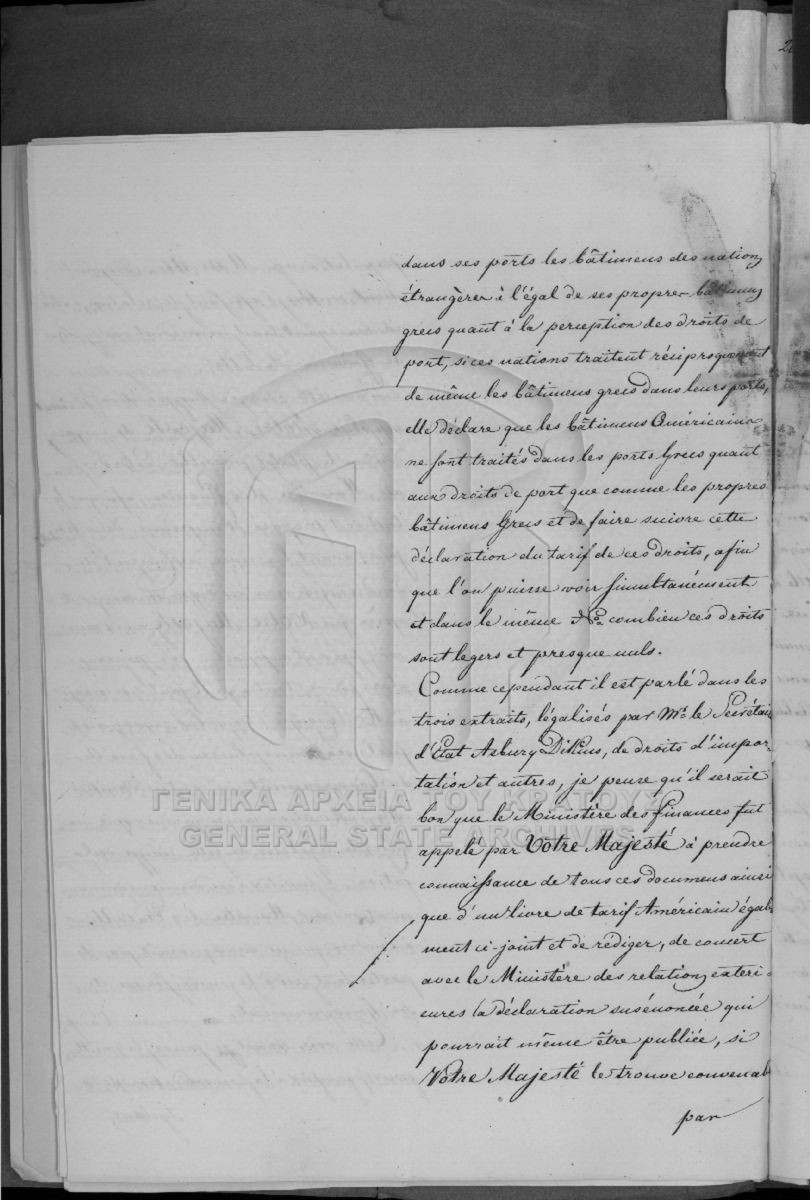 dans ses ports les bâtimens des nations
étrangères à l'égal de ses propres bâtimens
grecs quant à la perception des droits de
port, si ces nations traitent réciproquement
de même les bâtimens grecs dans leurs ports,
elle déclare que les bâtimens Américains
ne sont traités dans les ports Grecs quant
aux droits de port que comme les propres
bâtimens Grecs et de faire suivre cette
déclaration du tarif de ces droits, afin
que l'on puisse voir simultanément
et dans le même No combien ces droits
sont legers et presque nuls.
Comme cependant il est parlé dans les
trois extraits, légalisés par Mr. le Secrétai
d'Etat Asbury Dikins, de droits d'impor-
tation et autres, je pense qu'il serait
bon que le Ministère des Finances fut
appelé par Votre Majesté à prendre
connaissance de tous ces documens ainsi
que d'un livre de tarif Américain égale
ment ci-joint et de rédiger, de concert
avec le Ministère des relations exteri
eures la déclaration susénoncée qui
pourrait même être publiée, si
Votre Majesté le trouve convenab
par
ΓΕΝΙΚΑ ΑΡΧΕΙΑ ΤΟΥ ΚΡΑΤΟΥΣ
GENERAL STATE ARCHIVES